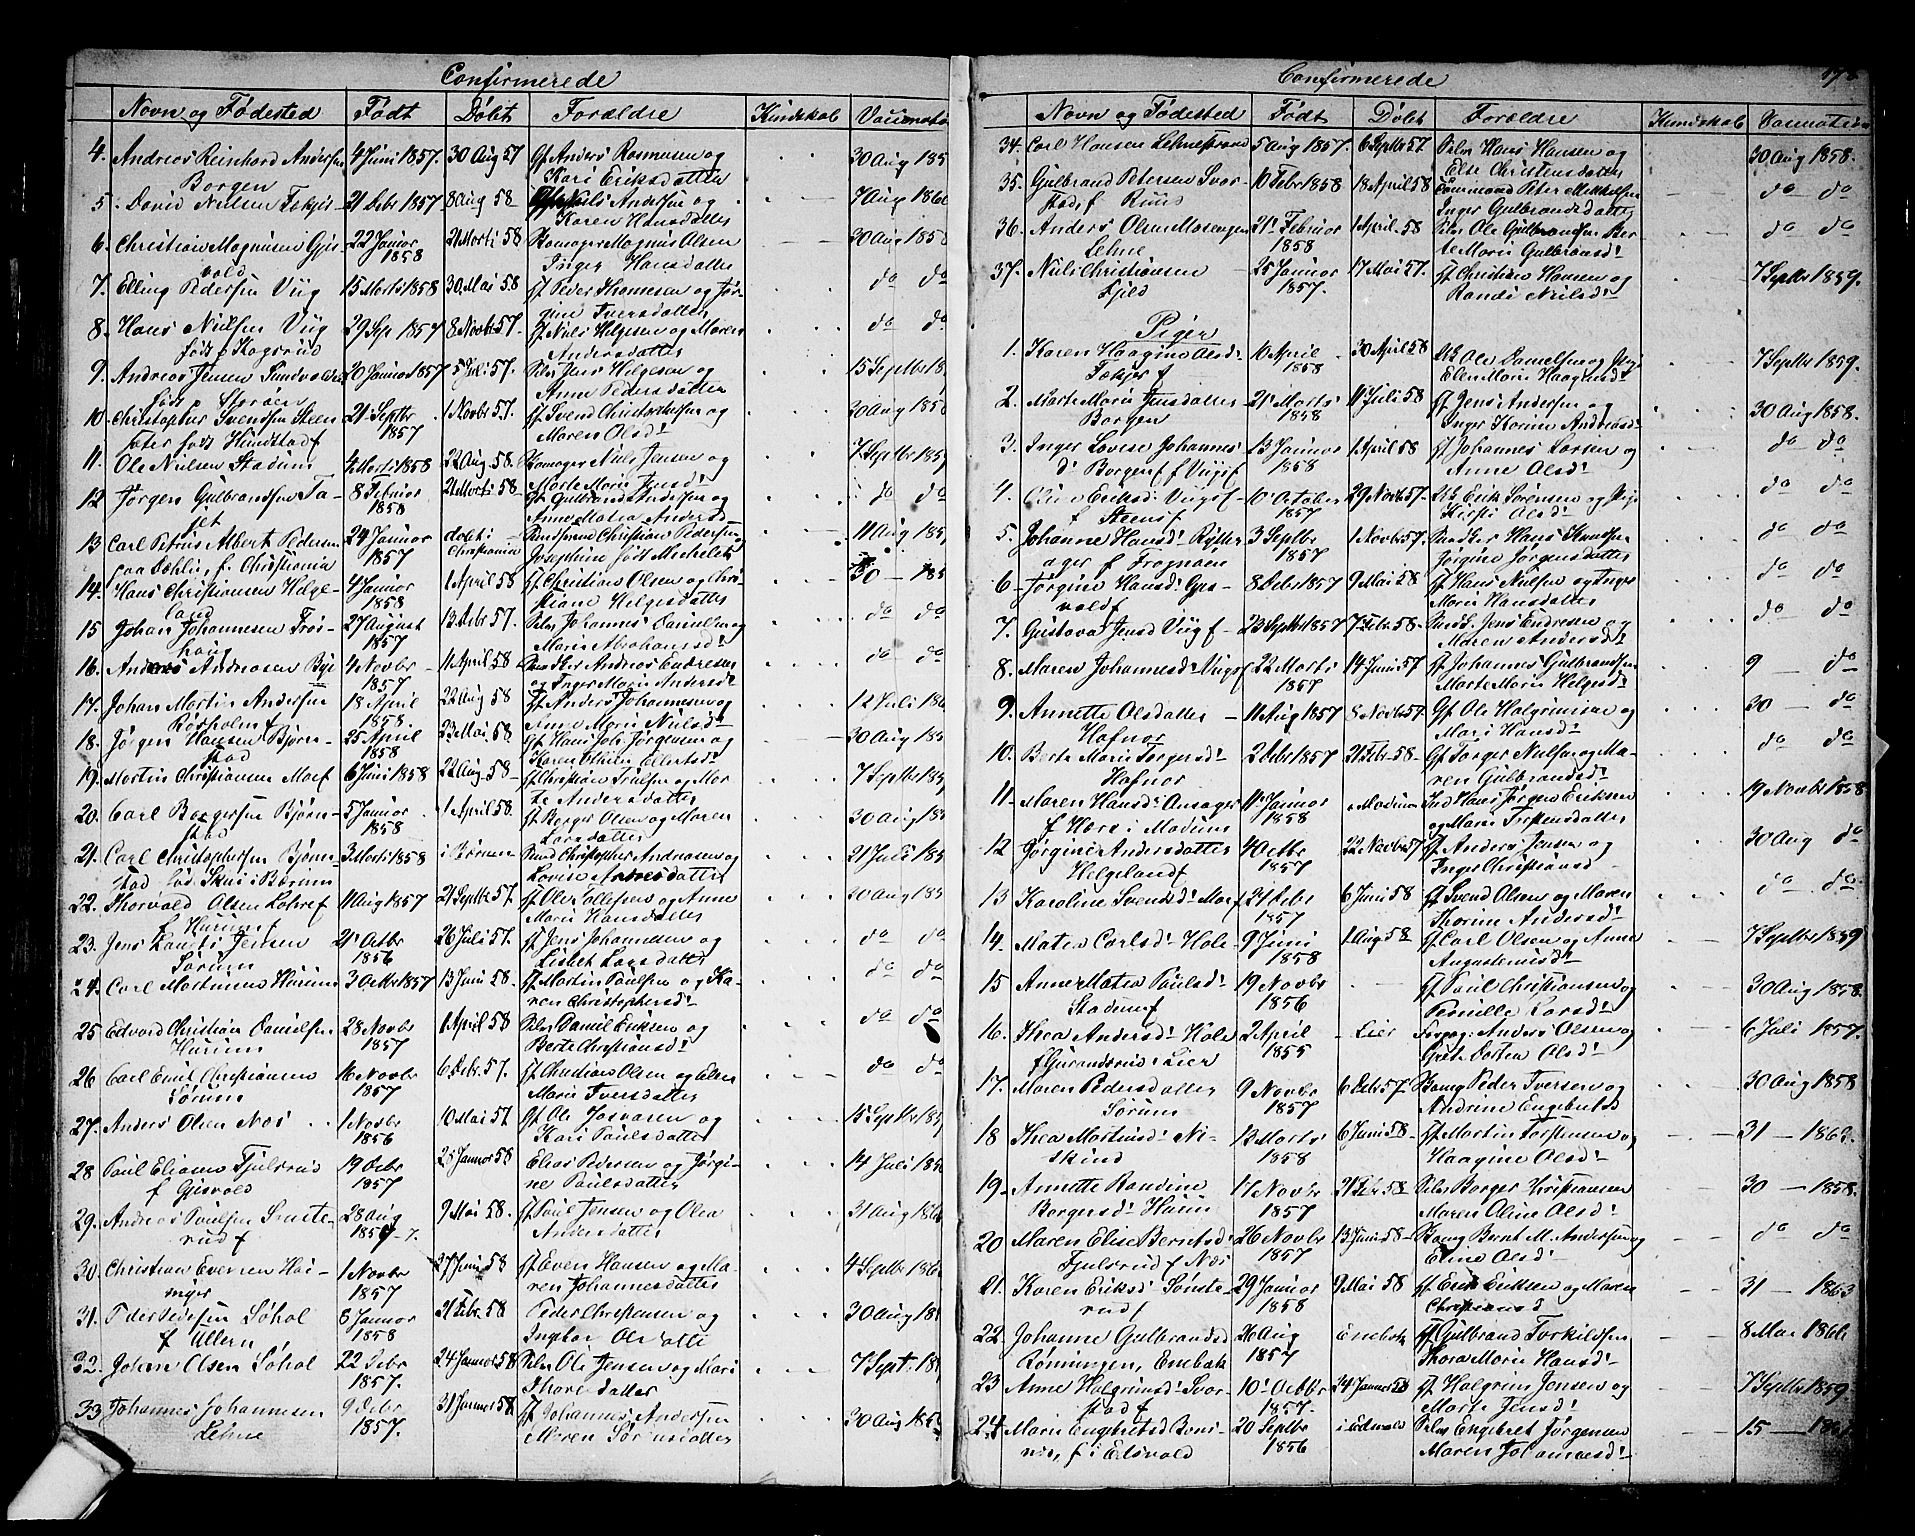 Confirmerede
Navn og Fødested Født Døbt Forældre Kundskab
4. Andreas Reinhard Andersen 4 Juni 1857. 30 Aug 57 Gf Anders Rasmusen og 30 Aug
Borgen Kari Eriksdatter
5. David Nielsen 21 Debr 1857 8 Aug 58 Niels Andersen og 7 Aug
Karen Hansdatter
6. Christian Magnusen Gjes- 22 Januar 21 Marts 58 Magnus Olsen 30 Aug
vold 1858 Inger Hansdatter
7. Elling Pedersen Viig 15 Marts 1858 30 Mai 58 Gf Peder Thomesen og Jør- do do
gine Iversdatter
8. Hans Nielsen Viig 29 Sep 1857 8 Novbr 57. Gf Niels Helgesen og Maren do do
født Kagsrud Andersdatter
9. Andreas Jensen Sundvolden 20 Januar 1857 5 Juli 57. Jens Helgesen og 15 Septbr
født Anne Pedersdatter
10. Christopher Svendsen Steen 21 Septbr 1 Novbr 57. Gf Svend Christophersen og 30 Aug
1857 Maren Olsd:
11. Ole Nielsen Stadum 4 Marts 1858 22 Aug. 58. Niels Jensen og 7. Septbr
Marte Marie Jensd:
12 Jørgen Gulbrandsen Ta- 8 Februar 21 Marts 58 Gf Gulbrand Andersen og do do
jet 1858 Anne Matea Andersd
13 Carl Petrus Albert Pedersen 24 Januar døbt i Christian Pedersen 11 Aug
paa Dæhli, f. Christiania 1857 Christiania Josephine født Michelet
14. Hans Christiansen Helge- 4 Januar 1 April 58 Gf Christian Olsen og Chri- 30
land 1858 stiane Helgesdatter
15 Johan Johannesen Frøs- 27 August 13 Debr 57. Johannes Danielsen og do do
houg 1857 Marie Abrahamsd:
16. Andreas Andreasen Bye 4 Novbr 11 April 58 Andreas Endresen do do
1857 og Inger Marie Andersd:
17. Johan Martin Andersen 18 April 22 Aug 58 Gf Anders Johannesen og 12 Juli
Rørholm 1858. Anne Marie Nielsd:
18. Jørgen Hansen Bjørn- 25 April 23 Mai 58. Gf Hans Joh. Jørgensen og 30 Aug
stad 1858 Karen Oline Eilertsd:
19. Martin Christiansen Moe f 6 Juni 1858 22 Aug. 58 Gf Christian Truelsen og Mar 7 Septbr
te Andersdatter
20. Carl Borgersen Bjørn- 5 Januar 1 April 58. Gf Borger Olsen og Maren 30 Aug
stad 1858 Larsdatter
21. Carl Christophersen Bjørn- 3 Marts 1858 i Bærum Christopher Andreasen og 21 Juli
stad fød. Skui i Bærum Lovise
22. Thorvald Olsen Lehre f 11 Aug 1857 21 Septbr 57. Gf Ole Tollefsen og Anne 20 Aug
f Hurum Marie Hansdatter
23. Jens Jensen 21 Octbr 26 Juli 57. Gf Jens Johannesen og do do
Sørum 1856 Lisbet Larsdatter
24. Carl Martinsen Hurum 3 Octbr 1857 13 Juni 58. Gf Martin Paulsen og Ka- do do
ren Christophersd:
25 Edvard Christian Danielsen 28 Novbr 1 April 58 Daniel Eriksen og do do
Hurum 1857 Berte Christiansd:
26 Carl Emil Christiansen 16 Novbr 6 Debr. 57. Gf Christian Olsen og Ellen do do
Sørum 1857 Marie Iversdatter
27. Anders Olsen Næs 1 Novbr 10 Mai 57 Gf Ole Josvasen og 15 Septbr
1856 Kari Paulsdatter
28 Paul Eliasen Fjulsrud 19 Debr 28 Januar 58 Elias Pedersen og Jørgi- 14 Juli
f Gjesvold 1857 ne Paulsdatter
29. Andreas Paulsen Smette- 28 Aug 9 Mai 58. Gf Paul Jensen og Olea 31 Aug
rud f 1857 Andersdatter
30. Christian Evensen Hæi- 1 Novbr 27 Juni 58 Gf Even Hansen og Ma- 4 Septbr
1857 ren Johannesdatter
31. Peder Pedersen Søhol 8 Januar 21 Febr. 58 Peder Christensen og 30 Aug
f Ullern 1858 Ingebor Olsdatter
32. Johan Olsen Søhol 22 Debr 24 Januar 58 Ole Jensen og Mari 7 Sept.
1857. Thoresdatter
33 Johannes Johannesen 9 Debr 31 Januar 58 Gf Johannes Andersen 30 Aug
Lehne 1857. Maren
Confirmerede
Navn og Fødested Født Døbt Forældre Kundskab Vaccination
34. Carl Hansen Lehnestrand 5 Aug 1857. 6 Septbr 57. Hans Hansen og 30 Aug 1858.
Else Christensdatter
35. Gulbrand Petersen Svar- 10 Febr 1858 18 April 58 Peter Mikkelsen do do
stad, f Inger Gulbrandsdatter
36. Anders Olsen Mosengen 21 Februar 1 April 58 Ole Gulbrandsen Ber- do do
Lehne 1858 te Marie Gulbrandsd:
37. Niels Christiansen 25 Januar 17 Mai 57. Gf Christian Hansen og 7 Septbr 1859.
Fjeld 1857. Randi Nielsd:
Piger
1. Karen Haagine Olsd: 10 April 30 April 58 Ole Danielsen og 7 Septbr 1859.
f 1858 Ellen Marie Haagensd:
2. Marte Marie Jensdatter 21 Marts 11 Juli 58 Gf Jens Andersen og 30 Aug 1858.
Borgen 1858 Inger Karine Andreasd:
3. Inger Lovise Johannes 13 Januar 1 April 58 Gf Johannes Larsen og do do
d: Borgen f Viig f 1858 Anne Olsd:
4. Eriksd: Viigs f 10 October 29 Novbr 57. Erik Sørensen og do do
f Steens f 1857 Kirsti Olsd:
5. Johanne Hansd: Rytter 3 Septbr 1 Novbr 57. Hans Knudsen do do
ager f Frognøen 1857 Jørgine Jørgensdatter
6 Jørgine Hansd: Gjes- 8 Debr 1857 9 Mai 58 Gf Hans Nielsen og Inger do do
vold f Marie Hansdatter
7. Gustava Jensd Viig f 23 Septbr 1857 7 Febr 58. Jens Endresen og do do
Maren Andersd:
8. Maren Johannesd: Viigs f 22 Marts 14 Juni 57 Gf Johannes Gulbrandsen 9 — do
1857 Marte Marie Helgesd:
9. Annette Olsdatter 11 Aug 1857 8 Novbr 57. Gf Ole Halgrimsen og 30 — do
Hafnor Mari Hansd:
10. Berte Marie Torgersd: 2 Debr 1857 21 Febr. 58. Gf Torger Nielsen og Ma- do do
Hafnor ren Gulbrandsd:
11. Maren Hansd: Ansager 11 Januar i Modum Ind Hans Jørgen Eriksen 19 Novbr 1858
f Hære i Modum 1858 og Marie Torstensdatter
12 Jørgine Andersdatter 4 Octbr 22 Novbr 57 Gf Anders Jensen og 30 Aug do
Helgeland f 1857 Inger Christiansd:
13 Karoline Svensd: Moe f 21 Debr 6 Juni 58 Gf Svend Olsen og Maren do do
1857 Thorine Andersd:
14. Matea Carlsd: Hole 9 Juni 1 Aug 58 Gf Carl Olsen og Anne 7 Septbr 1859
1858 Augustinusd:
15 Anne Matea Paulsd: 19 Novbr Gf Paul Christiansen og 30 Aug 1858.
Stadum f 1856 Pernille Larsd:
16. Thea Andersd: Hole 2 April Lier Anders Olsen og 6 Juli 1857.
f i Lier 1855 Olsd:
17. Maren Pedersdatter 9 Novbr 6 Debr 57 Peder Iversen og 30 Aug 1858
Sørum 1857 Andrine Engebretsd
18 Thea Martinsd: Ni- 13 Marts 6 Juni 58 Gf Martin Torstensen og 31 — 1863.
skind 1858 Haagine Olsd:
19. Annette Randine 17 Novbr 21 Febr 58 Borger Christiansen 30 — 1858.
Borgersd: Hurum 1857 Maren Oline Olsd:
20 Maren Elise Berntsd 26 Novbr 13 Juni 58 Bernt M. Andersen og do do
Fjulsrud f Næs 1857 Eline Olsd:
21. Karen Eriksd: Smette- 29 Januar 9 Mai 58 Gf Erik Eriksen og Maren 31 — 1863
rud f 1858 Christiansd
22. Johanne Gulbrandsd 26 Aug Enebak Gf Gulbrand Torkildsen 8 Mai
Rønningen, Enebak 1857 Thora Marie Hansd:
23 Anne Halgrimsd: Svar- 10 Octbr 24 Januar 58 Gf Halgrim Jensen og 7 Septbr 1859.
stad f 1857. Marte Jensd:
24 Marie Engebretsd 20 Septbr i Eidsvold Engebret Jørgensen 15 —
f i Eidsvold 1856 Maren Johannesd: